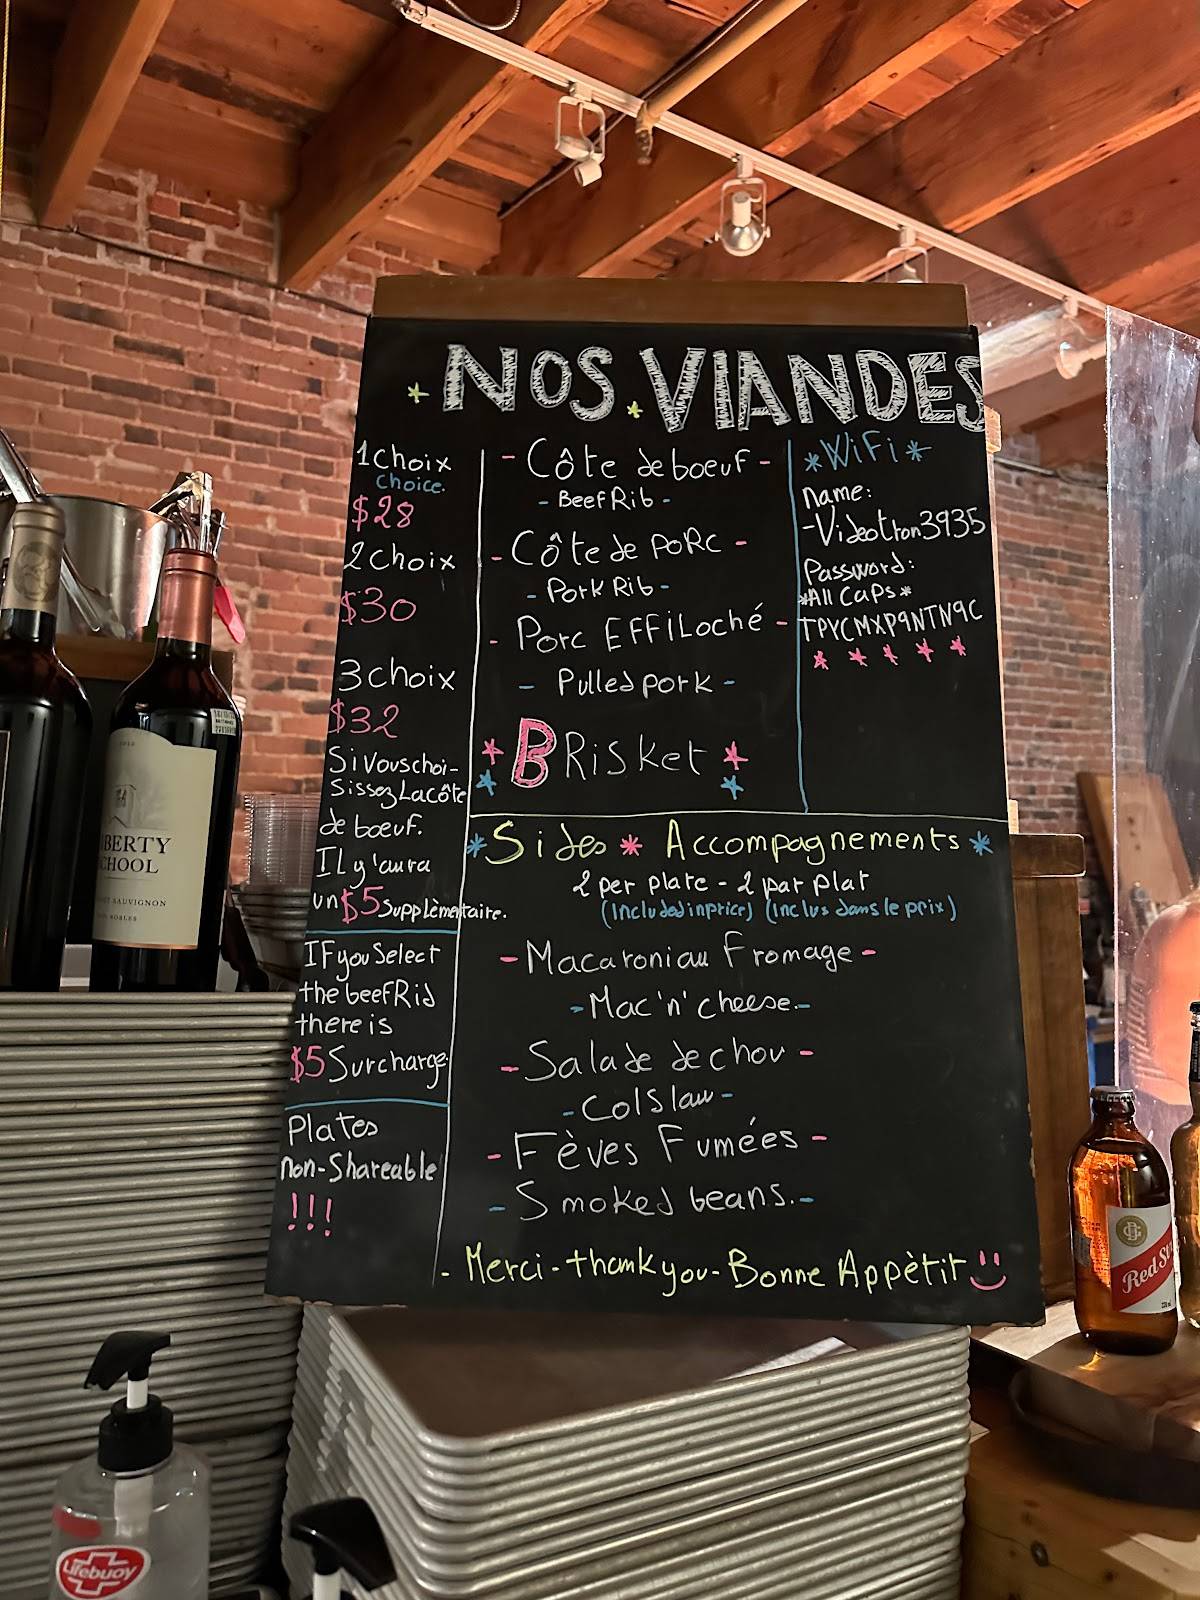 NOS VIANDES
1 choix
choice.
$28
2 choix
$30
3 choix
$32
Si vous choi-
sissez La côte
de boeuf.
IL y'aura
un $5 supplèmentaire.
IF you Select
the beef Rib
there is
$5 Surcharge.
Plates
non-Shareable
!!!
- Côte de boeuf -
- Beef Rib -
- Côte de PoRc -
- Pork Rib -
- Porc EFFiLoché -
- Pulled pork -
BRisket
*WiFi*
name:
-Videotron3935
Password:
*All Caps*
TPYCMXP9NTN9C
*Sides * Accompagnements *
2 per plate - 2 par plat
(Included in price) (Inclus dans le prix)
- Macaroni au Fromage -
- Mac 'n' cheese.-
- Salade de chou -
- ColSlaw -
- Fèves Fumées -
- Smoked beans.-
- Merci - thank you - Bonne Appètit
BERTY
CHOOL
SAUVIGNON
ROBLES
Lifebuoy
Red St